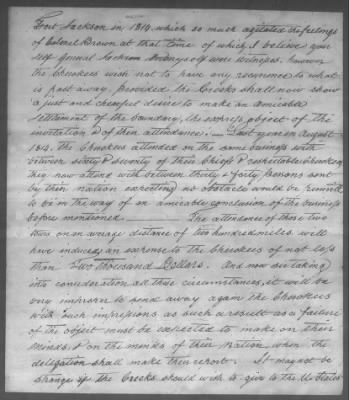 Fort Jackson in 1814, which so much agitated the feelings
of Colonel Brown at that time of which I believe your
self General Jackson & myself were witnesses, however
the Cherokees wish not to have any recurrence to what
is past away, provided the Creeks shall now show
a just and cheerful desire to make an amicable
settlement of the boundary, the express object of the
invitation & of their attendance. — Last year in August
1814. the Cherokees attended on the same business with
between sixty & seventy of their Chiefs & respectable Cherokees
they now attend with between thirty & forty Persons sent
by their nation expecting no obstacle would be
to be in the way of an amicable conclusion of the business
before mentioned — The attendance of those two
tours on an average distance of two hundred miles will
have induced an expense to the Cherokees of not less
than Two Thousand Dollars. And now sir taking
into consideration all these circumstances, it will be
very improper to send away again the Cherokees
with such impressions as such a result as a failure
of the object must be expected to make on their
minds, & on the minds of their Nation when the
delegation shall make their report. It may not be
strange if the Creeks should wish to give to the U. States